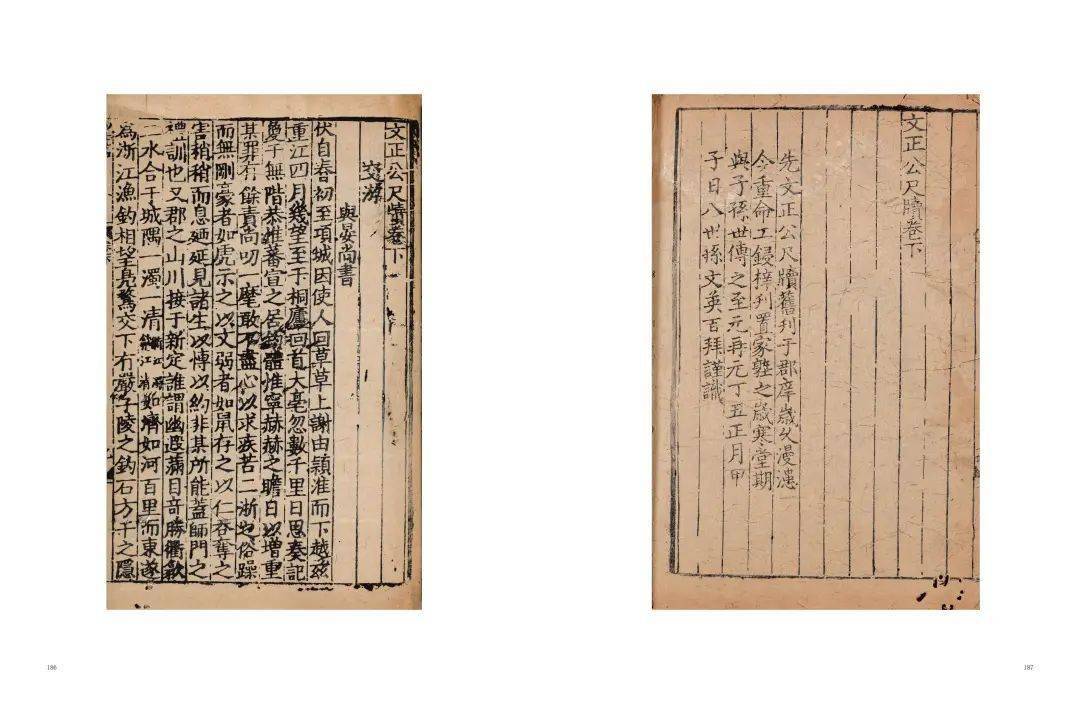 文正公尺牘卷下
交游
與晏尚書
伏自春初至項城因使人回草草上謝由潁淮而下越茲
重江四月幾望至于桐廬回首大亳忽數千里日思奏記
敻于無階恭惟蕃宣之居鈞體惟寧赫赫之瞻日以增重
某罪有餘責尚叨一麾敢不盡心以求疾苦二浙之俗躁
而無剛豪者如虎示之以文弱者如鼠存之以仁吞奪之
害稍稍而息廼延見諸生以博以約非某所能蓋師門之
禮訓也又郡之山川接于新定誰謂幽遐滿目奇勝衢歙
二水合于城隅一濁一清如濟如河百里而東遂
為浙江漁釣相望鳧鶩交下有嚴子陵之釣石方干之隱
186
文正公尺牘卷下
先文正公尺牘舊刊于郡庠歲久漫漶
今重命工鋟梓刊置家塾之歲寒堂期
與子孫世傳之至元再元丁丑正月甲
子日八世孫文英百拜謹識
187